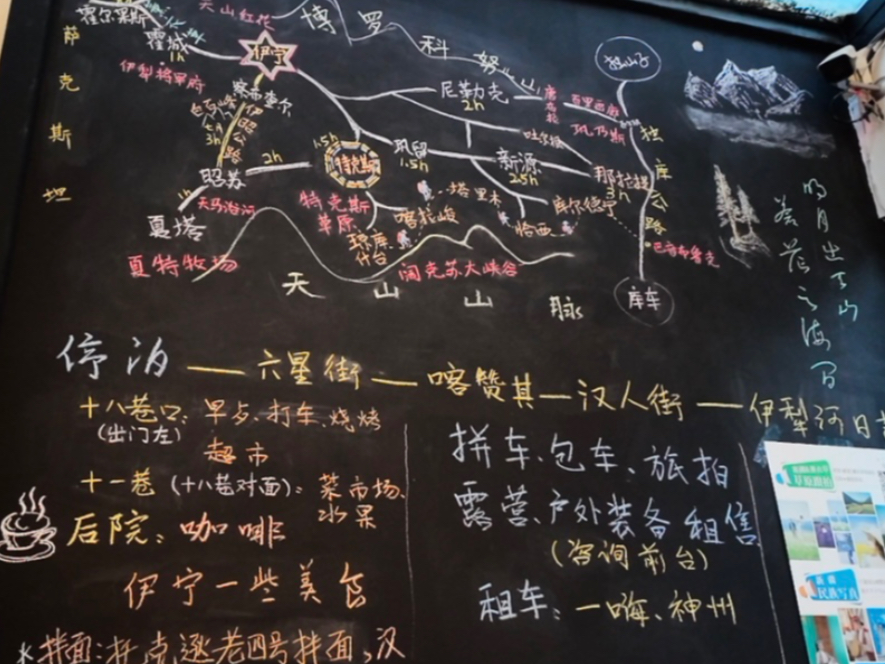 天山红花
博罗科努山
霍尔果斯
霍城
1h
伊宁
独山子
萨克斯坦
伊犁将军府
察布查尔
尼勒克
2h
唐布拉
百里画廊
白石峰
伊昭公路
3h
乔尔玛
独库公路
昭苏
2h
1.5h
特克斯
巩留
1.5h
新源
2.5h
那拉提
3h
1h
天马浴河
特克斯草原
喀拉峻
塔里木
库尔德宁
恰西
夏塔
琼库什台
巴音布鲁克
夏特牧场
阔克苏大峡谷
天山山脉
库车
明月出天山
苍茫云海间
停泊——六星街——喀赞其—汉人街——伊犁河日
十八巷口：早点、打车、烧烤
(出门左)
超市
十一巷（十八巷对面）：菜市场、
水果
后院：咖啡
伊宁一些美食
拼车、包车、旅拍
露营、户外装备租售
(咨询前台)
租车：一嗨、神州
民族写真